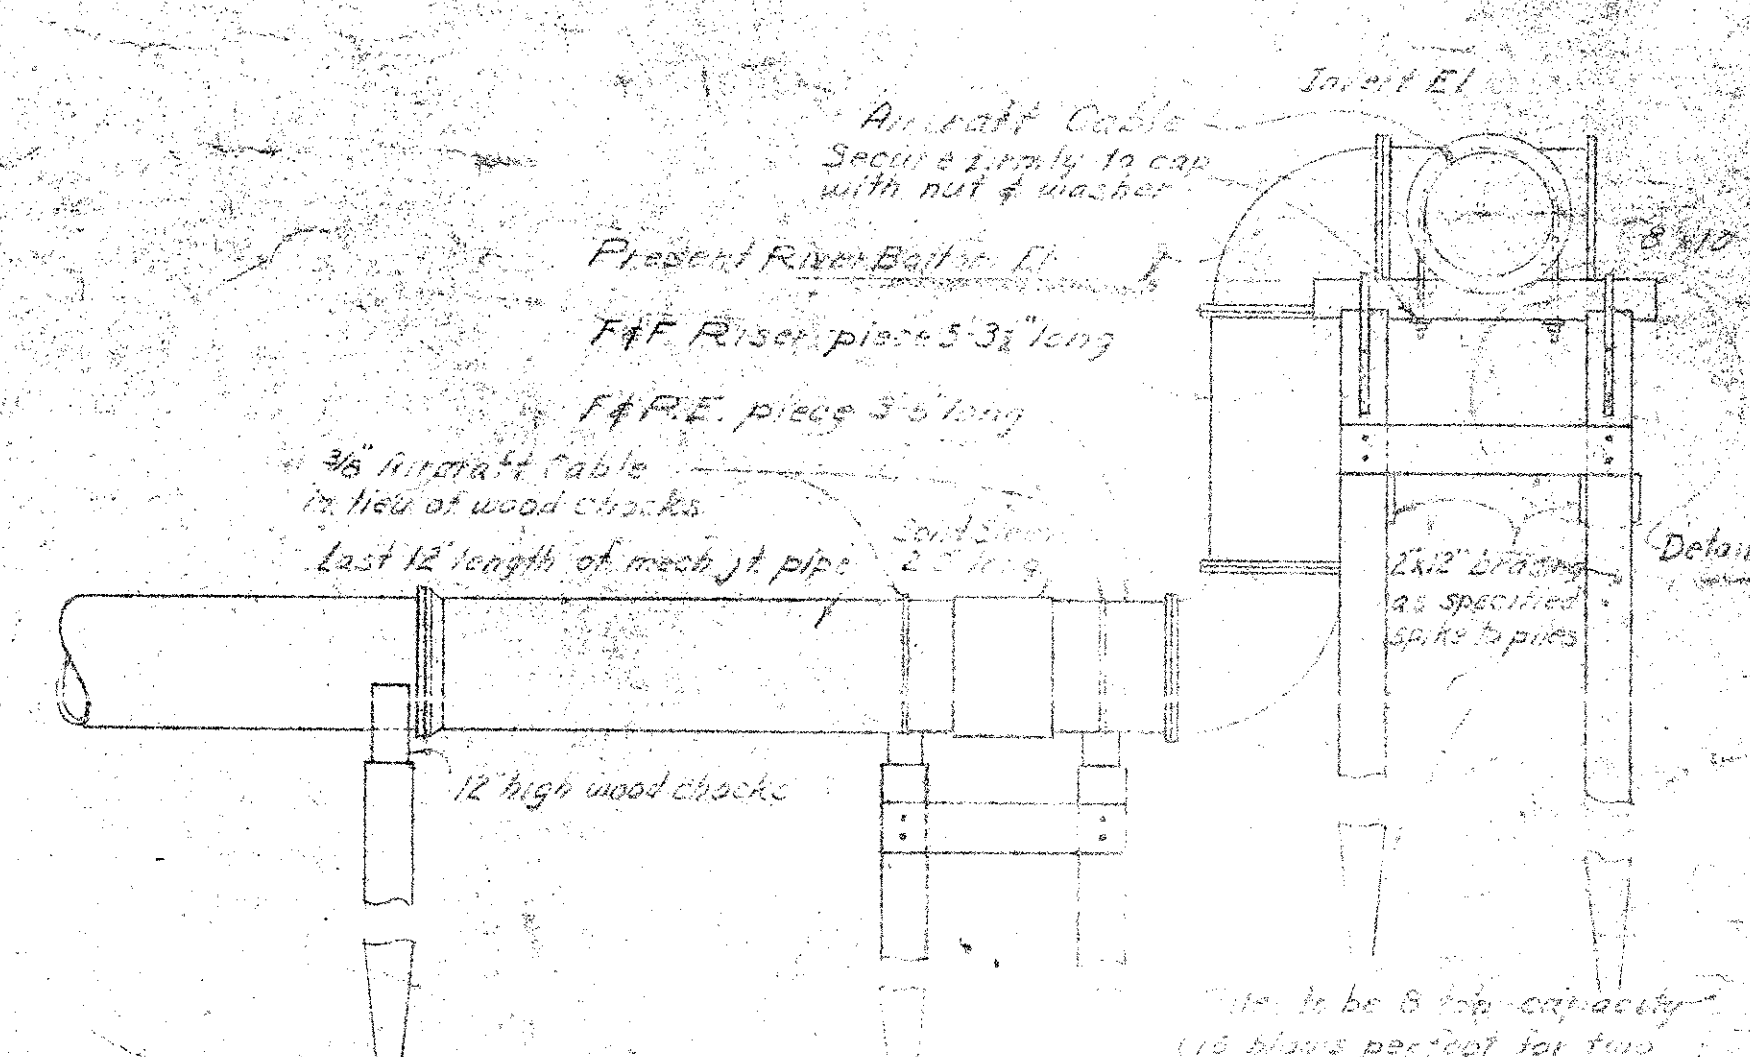 Invert El
Aircraft Cable
Secure firmly to cap
with nut & washer
8"x10"
Present River Bottom El.
F&F Riser piece 5'-3½" long
F&P.E. piece long
3/8" Aircraft Cable
in lieu of wood chocks
Solid Sleeve
long
Last 12" length of mech jt pipe
2"x12" bracing
as specified
spike to piles
Detail
12" high wood chocks
to be 8 ton capacity
blows per foot for two